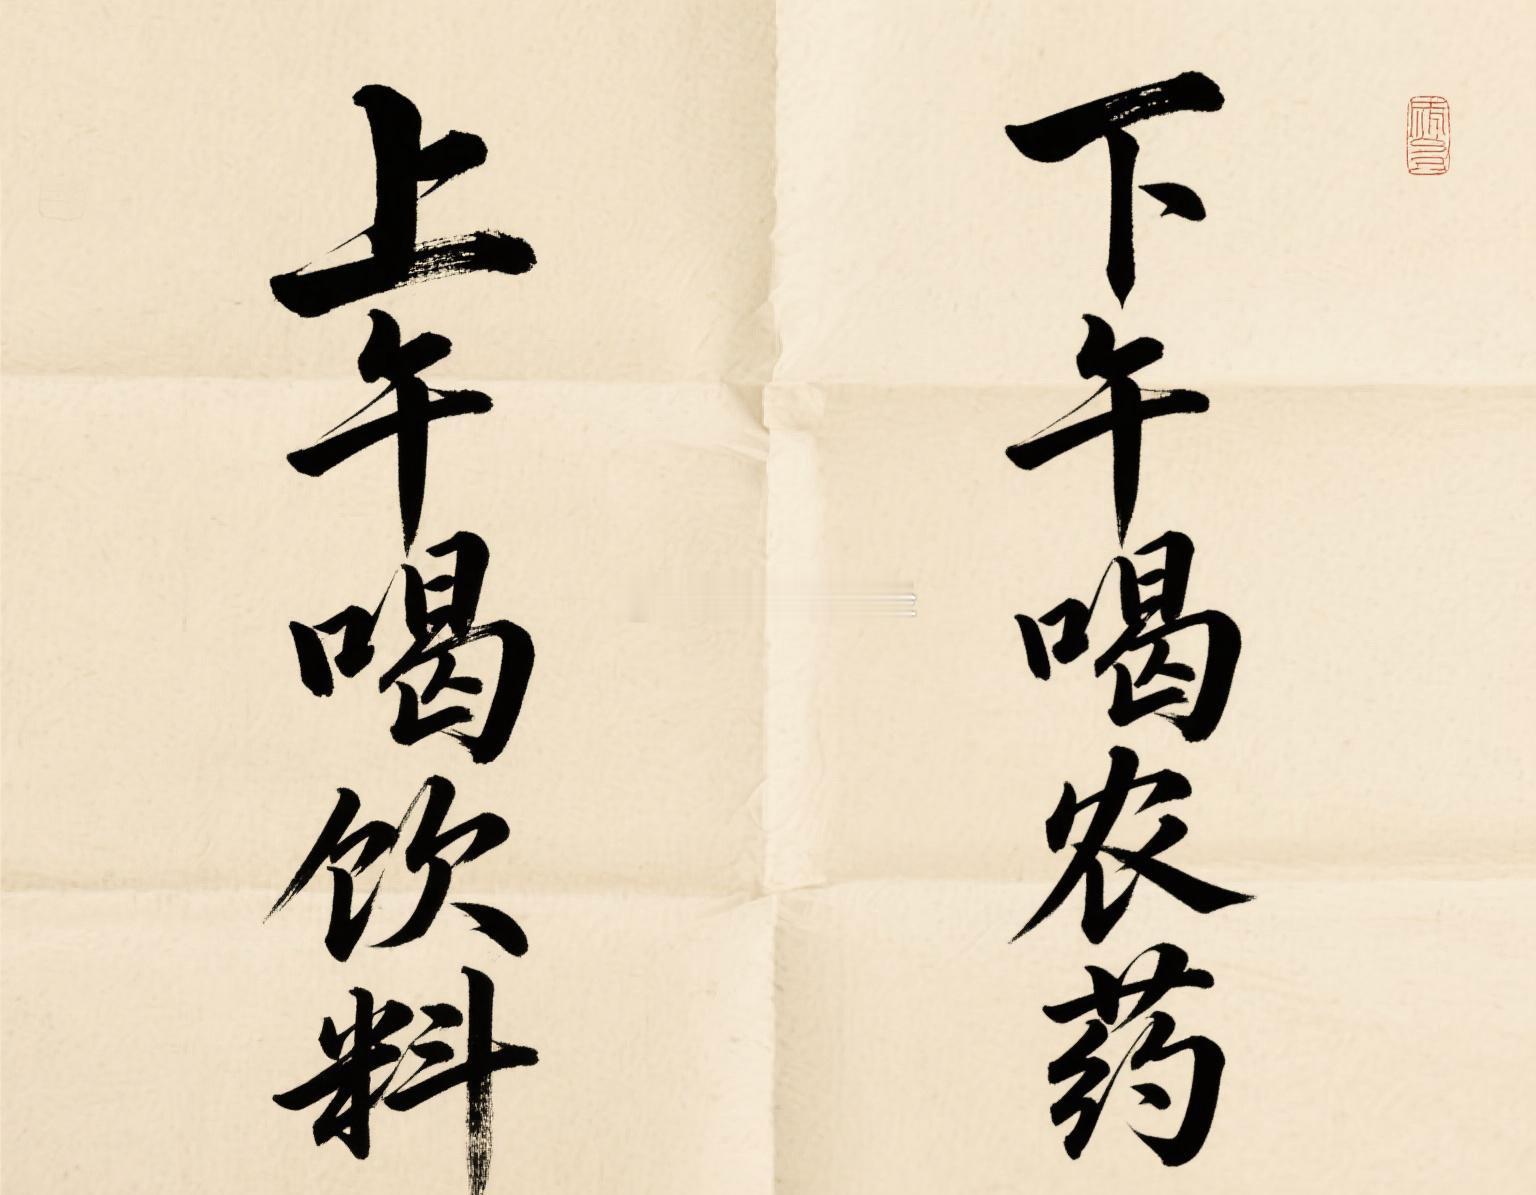 下午喝农药
上午喝饮料